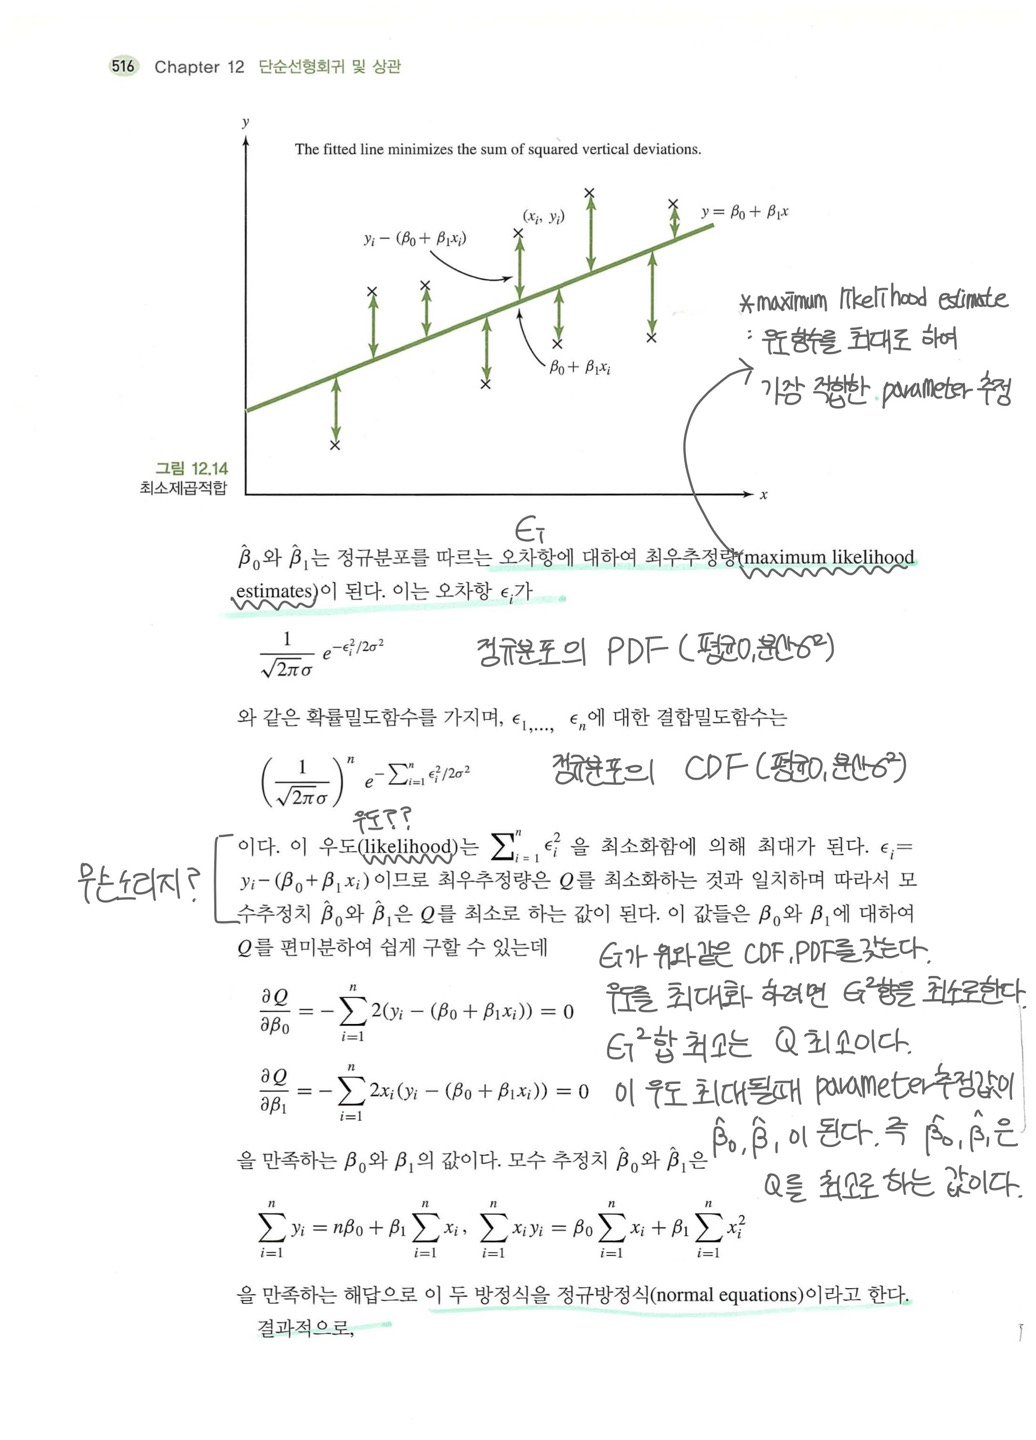 516 Chapter 12 단순선형회귀 및 상관
y
The fitted line minimizes the sum of squared vertical deviations.
(xᵢ, yᵢ)
y = β₀ + β₁x
yᵢ − (β₀ + β₁xᵢ)
β₀ + β₁xᵢ
x
*maximum likelihood estimate
: 우도함수를 최대로 하여
가장 적합한 parameter 추정
그림 12.14
최소제곱적합
ϵᵢ
β̂₀와 β̂₁는 정규분포를 따르는 오차항에 대하여 최우추정량(maximum likelihood
estimates)이 된다. 이는 오차항 ϵᵢ가
1/(√2π σ) e^(−ϵᵢ²/2σ²)
정규분포의 PDF (평균0, 분산σ²)
와 같은 확률밀도함수를 가지며, ϵ₁,..., ϵₙ에 대한 결합밀도함수는
(1/(√2π σ))ⁿ e^(−∑ⁿᵢ₌₁ ϵᵢ²/2σ²)
정규분포의 CDF (평균0, 분산σ²)
우도??
이다. 이 우도(likelihood)는 ∑ⁿᵢ₌₁ ϵᵢ² 을 최소화함에 의해 최대가 된다. ϵᵢ=
무슨소리지?
yᵢ−(β₀+β₁xᵢ)이므로 최우추정량은 Q를 최소화하는 것과 일치하며 따라서 모
수추정치 β̂₀와 β̂₁은 Q를 최소로 하는 값이 된다. 이 값들은 β₀와 β₁에 대하여
Q를 편미분하여 쉽게 구할 수 있는데
ϵᵢ가 위와같은 CDF, PDF를 갖는다.
우도를 최대화 하려면 ϵᵢ²합을 최소로한다.
ϵᵢ²합 최소는 Q 최소이다.
이 우도 최대될때 parameter 추정값이
β̂₀, β̂₁이 된다. 즉 β̂₀, β̂₁은
Q를 최소로 하는 값이다.
∂Q/∂β₀ = −∑ⁿᵢ₌₁ 2(yᵢ − (β₀ + β₁xᵢ)) = 0
∂Q/∂β₁ = −∑ⁿᵢ₌₁ 2xᵢ(yᵢ − (β₀ + β₁xᵢ)) = 0
을 만족하는 β₀와 β₁의 값이다. 모수 추정치 β̂₀와 β̂₁은
∑ⁿᵢ₌₁ yᵢ = nβ₀ + β₁ ∑ⁿᵢ₌₁ xᵢ, ∑ⁿᵢ₌₁ xᵢyᵢ = β₀ ∑ⁿᵢ₌₁ xᵢ + β₁ ∑ⁿᵢ₌₁ xᵢ²
을 만족하는 해답으로 이 두 방정식을 정규방정식(normal equations)이라고 한다.
결과적으로,